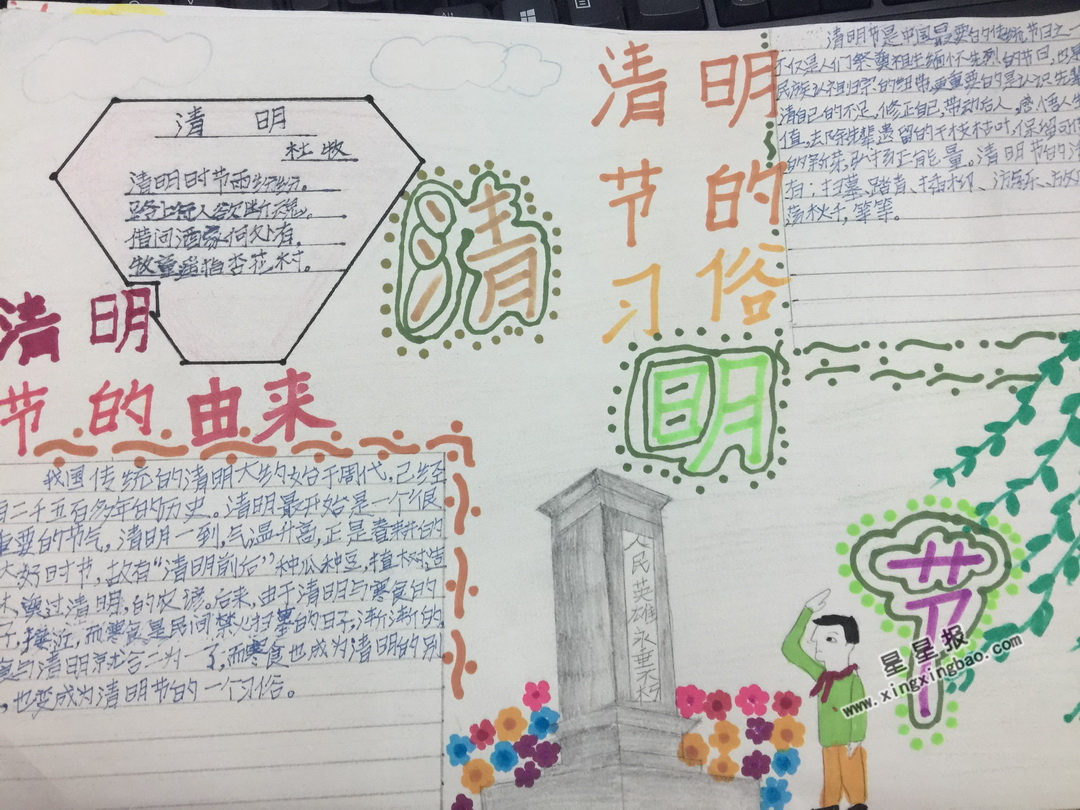 清 明
杜牧
清明时节雨纷纷。
路上行人欲断魂。
借问酒家何处有，
牧童遥指杏花村。
清
明
节
清明
节的由来
我国传统的清明大约始于周代，已经
二千五百多年的历史。清明最开始是一个很
重要的节气，清明一到，气温升高，正是春耕的
大好时节，故有“清明前后”种瓜种豆，植树造
过清明，的农谚。后来，由于清明与寒食的
接近，而寒食是民间禁火扫墓的日子，渐渐的，
与清明就合二为一了，而寒食也成为清明的别
，也变成为清明节的一个习俗。
清明
节的
习俗
清明节是中国最要的传统节日之一
不仅是人们祭奠祖先缅怀先烈的节日，也是
民族认祖归宗的纽带，更重要的是认识先辈
清自己的不足，修正自己，带动后人，感悟人生
值，去除先辈遗留的干枝枯叶，保留可借
的新芽，正能量。清明节的
有：扫墓、踏青、插柳、
荡秋千，等等。
人民英雄永垂不朽
星星报
www.xingxingbao.com